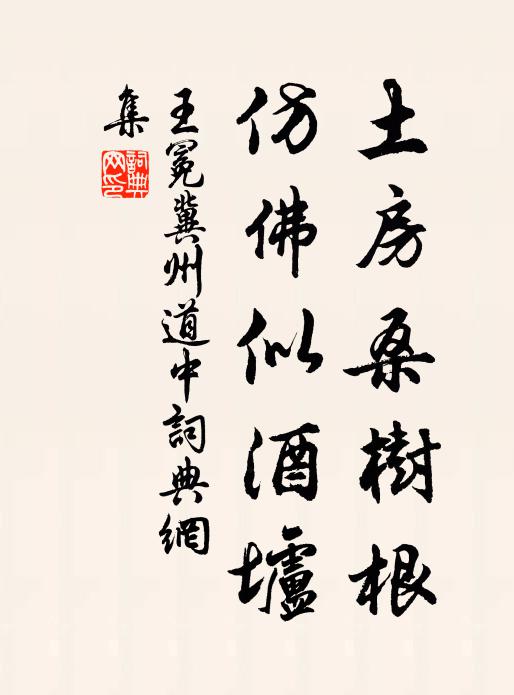 土房桑樹根
仿佛似酒壚
王冕冀州道中詞典網
集
詞典網印